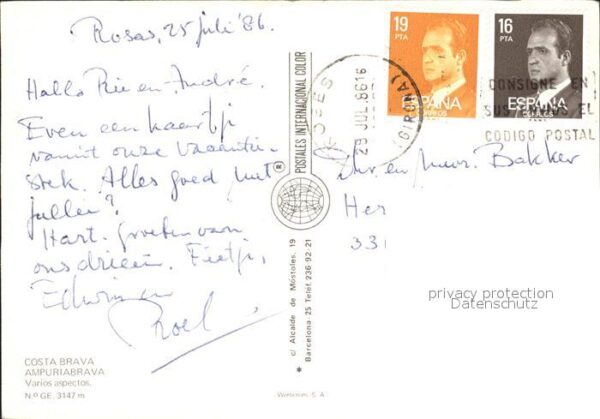 Rosas, 25 juli '86.
Hallo Rie en André.
Even een kaartje
vanuit onze vacantie-
stek. Alles goed met
jullie?
Hart. groeten van
ons drieën. Eietje,
Edwin en
Roel
COSTA BRAVA
AMPURIABRAVA
Varios aspectos.
N.º GE. 3147 m
POSTALES INTERNACIONAL COLOR
®
c/ Alcalde de Móstoles, 19
* Barcelona-25 Teléf. 236-92-21
Werbrien, S. A
19
PTA
ESPAÑA
CORREOS
16
PTA
ESPAÑA
CORREOS
ROSES
29 JUL. 86 16
(GIRONA)
CONSIGNE EN
SUS ENVIOS EL
CODIGO POSTAL
Dhr. en Mevr. Bakker
Her
33
privacy protection
Datenschutz